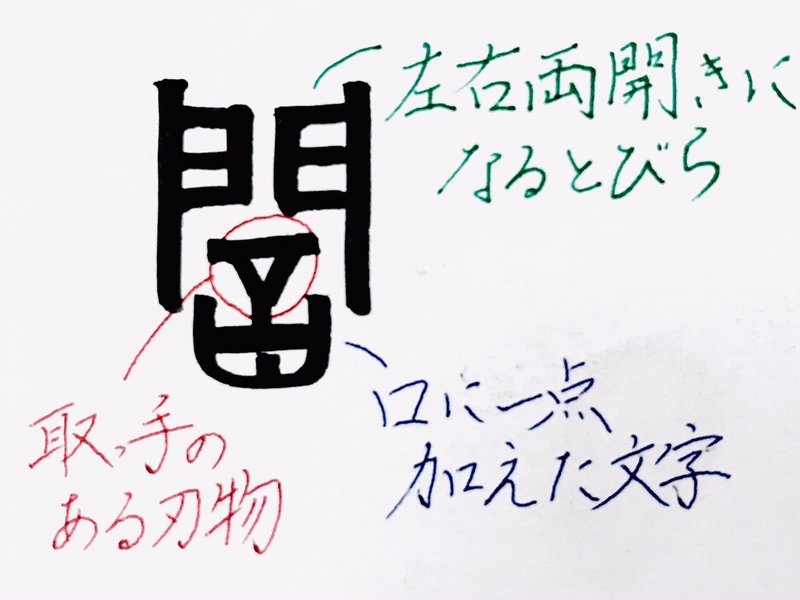 闇
左右両開きに
なるとびら
取っ手の
ある刃物
口に一点
加えた文字